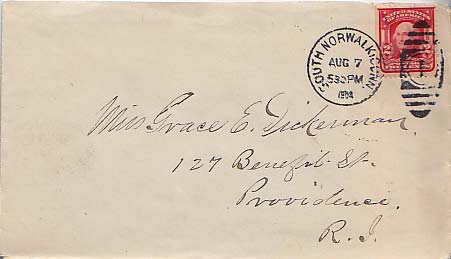 UNITED STATES
OF AMERICA
SOUTH NORWALK, CONN.
AUG 7
530PM
Miss Grace E. Dickerman,
127 Benefit St.
Providence.
R. I.